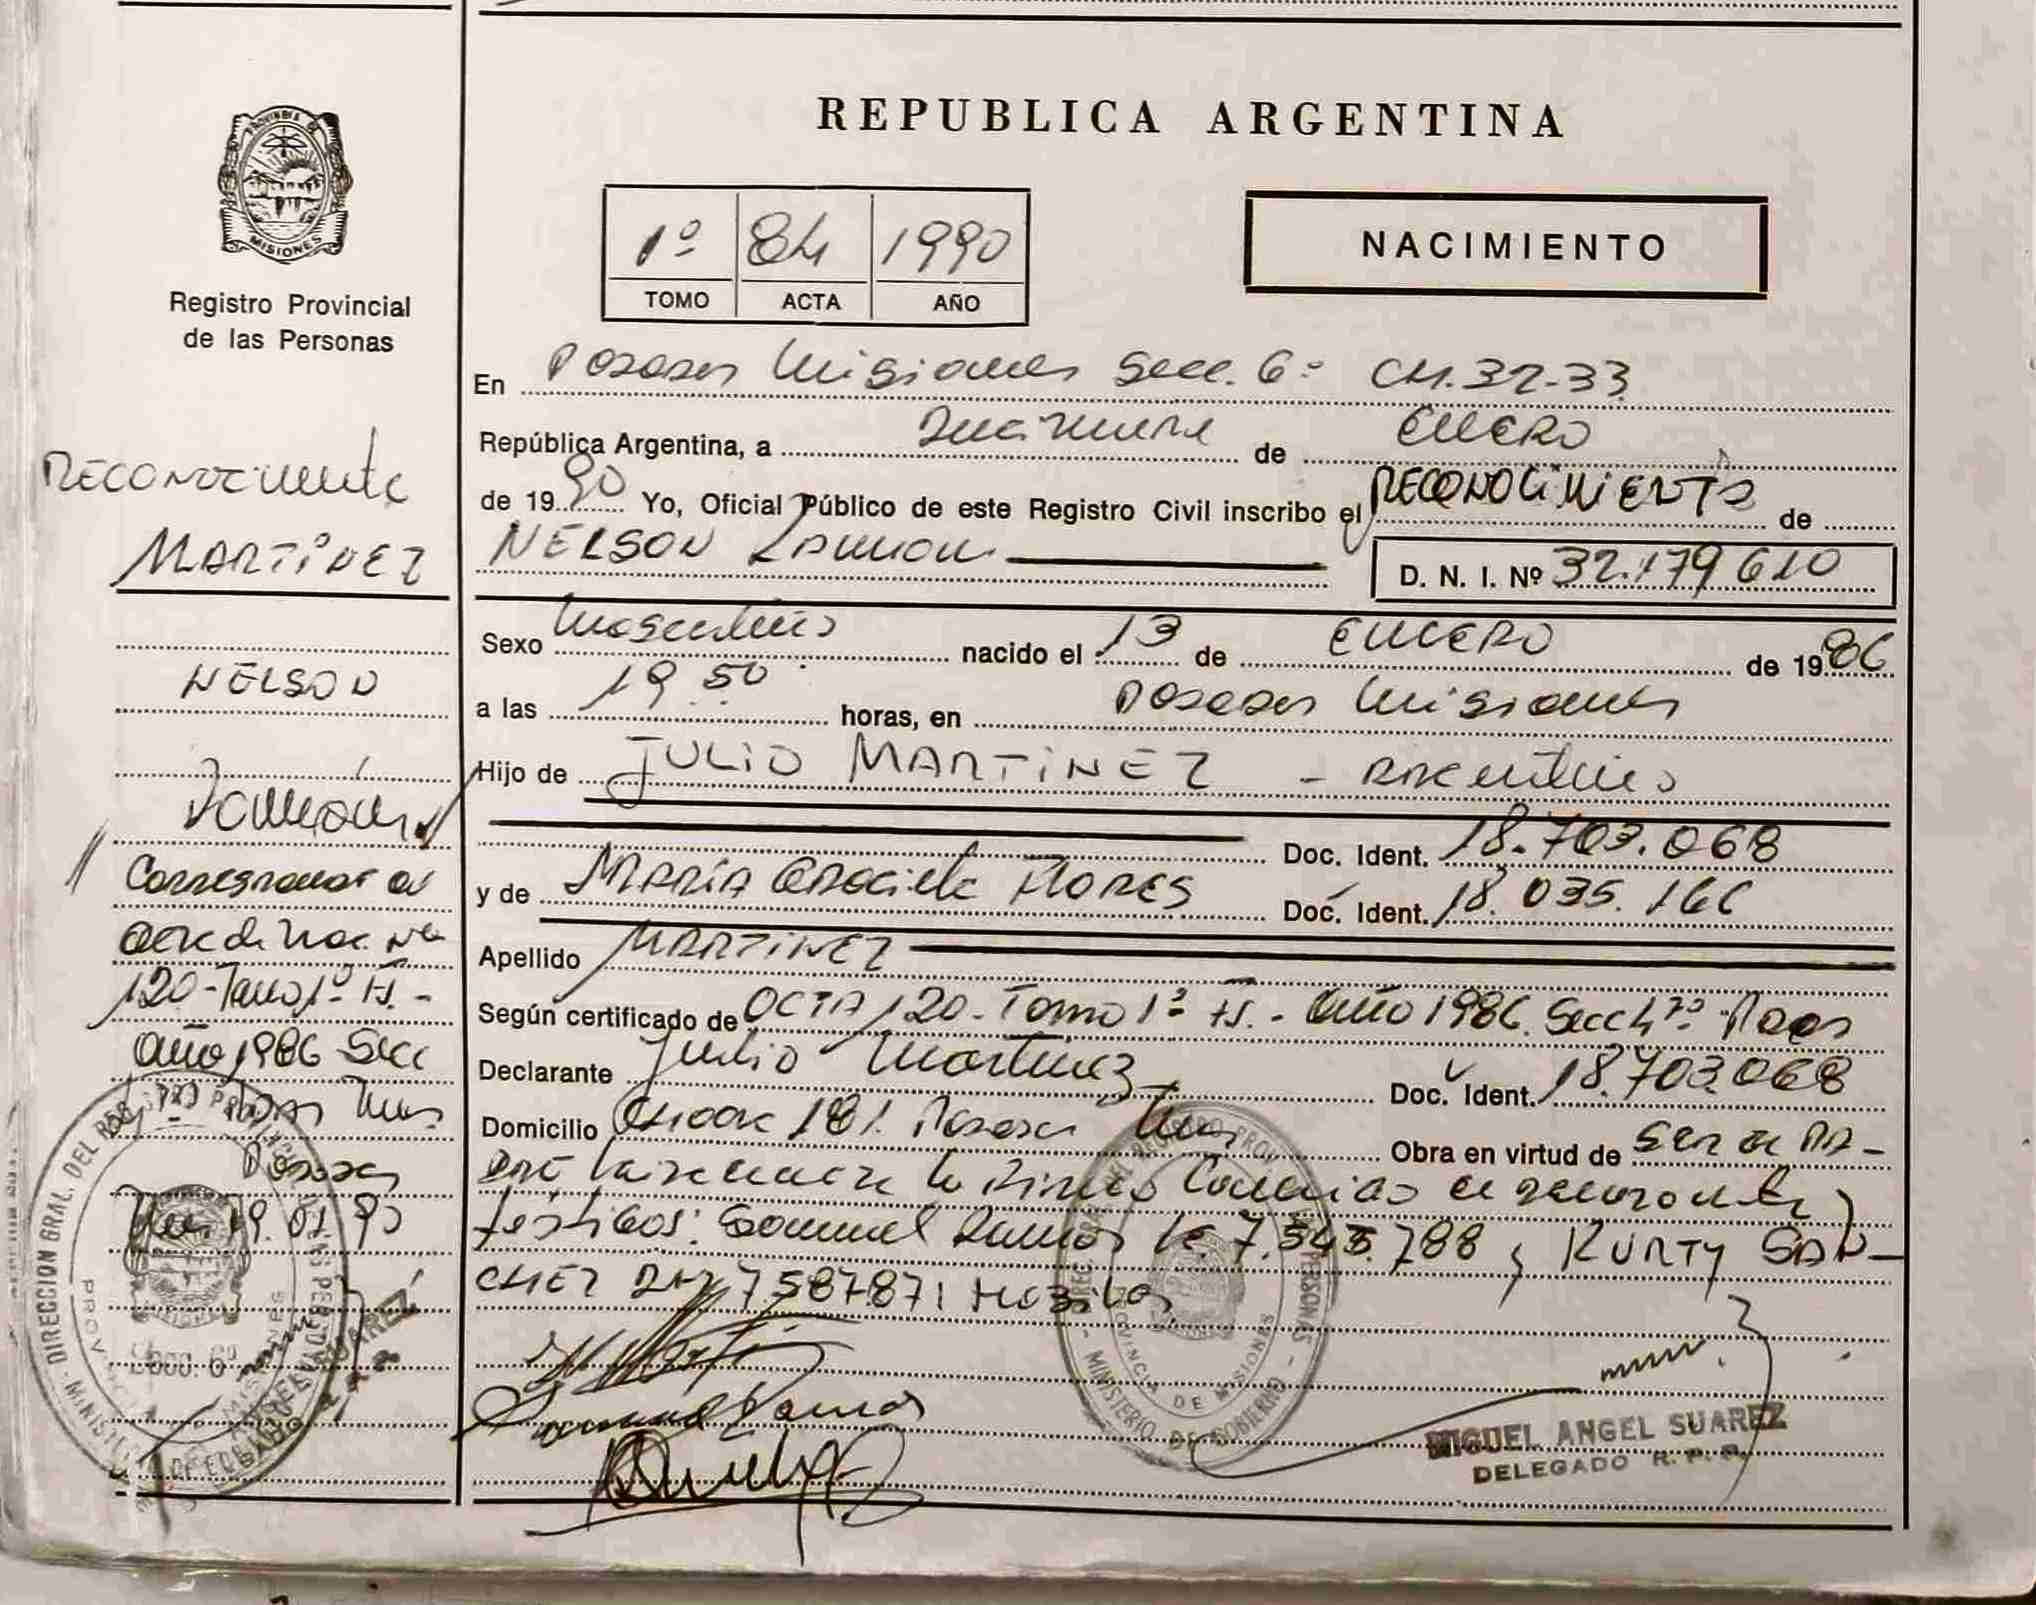 REPUBLICA ARGENTINA
PROVINCIA DE
MISIONES
Registro Provincial
de las Personas
1º 84 1990
TOMO ACTA AÑO
NACIMIENTO
En Posadas Misiones Secc. 6º CH. 32-33
República Argentina, a de ENERO
de 1990 Yo, Oficial Público de este Registro Civil inscribo el RECONOCIMIENTO de
NELSON RAMON
D. N. I. Nº 32.179610
Sexo Masculino nacido el 13 de ENERO de 1986
a las 19 50 horas, en Posadas Misiones
Hijo de JULIO MARTINEZ - Argentino
Doc. Ident. 18.703.068
y de MARIA Graciela FLORES Doc. Ident. 18.035.166
Apellido MARTINEZ
Según certificado de ACTA 120 - Tomo 1º Fs. - Año 1986. Secc 4ª Pdas
Declarante Julio Martinez Doc. Ident. 18.703.068
Domicilio 181. Posadas Mnes Obra en virtud de SER el PA-
testigos: Samuel Ramos 7.543.788 y KURTY SAN-
CHEZ 7587871
RECONOCIMIENTO
MARTINEZ
NELSON
Ramón
Corresponde al
acta de Nac. Nº
120 - Tomo 1º Fs. -
Año 1986 Secc
Pdas Mnes
Posadas
Mnes 19.01.90
DIRECCION GRAL. DEL REGISTRO PROV. DE LAS PERSONAS
PROVINCIA DE MISIONES
MINISTERIO DE GOBIERNO
MIGUEL ANGEL SUAREZ
DELEGADO R. P. P.